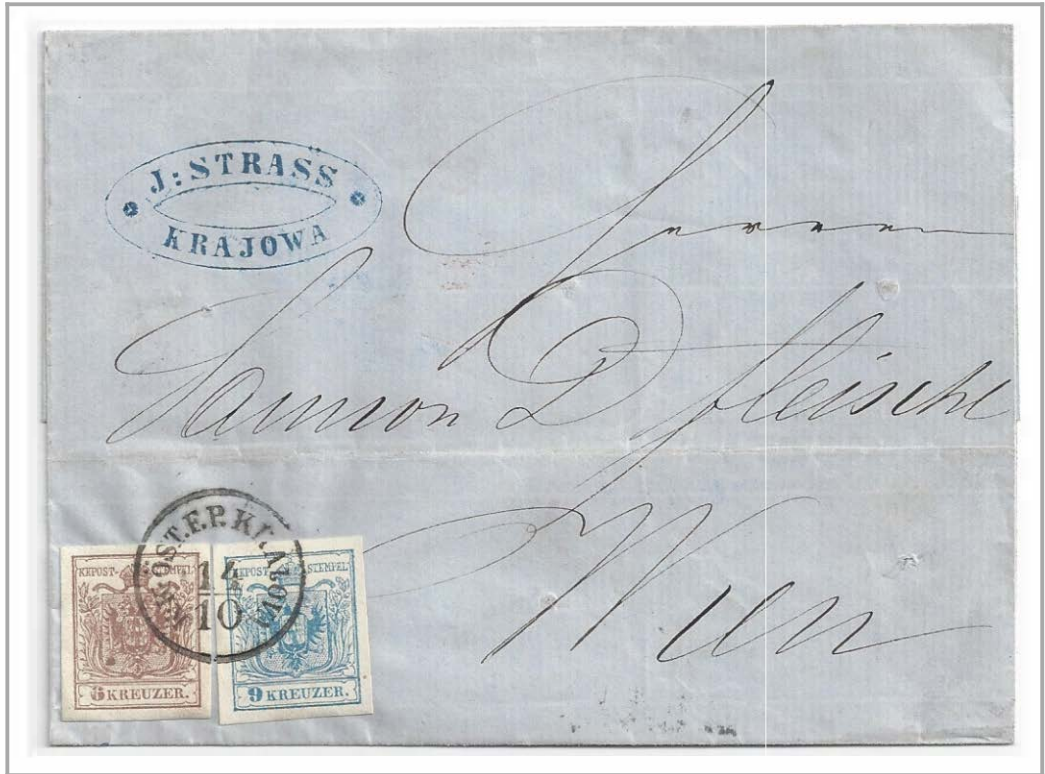 J: STRASS
KRAJOWA
Herren
Samson D Fleischl
Wien
K.K. ÖST. E.P. KRAJOVA
14
10
KK POST-STEMPEL
6 KREUZER.
KK POST-STEMPEL
9 KREUZER.